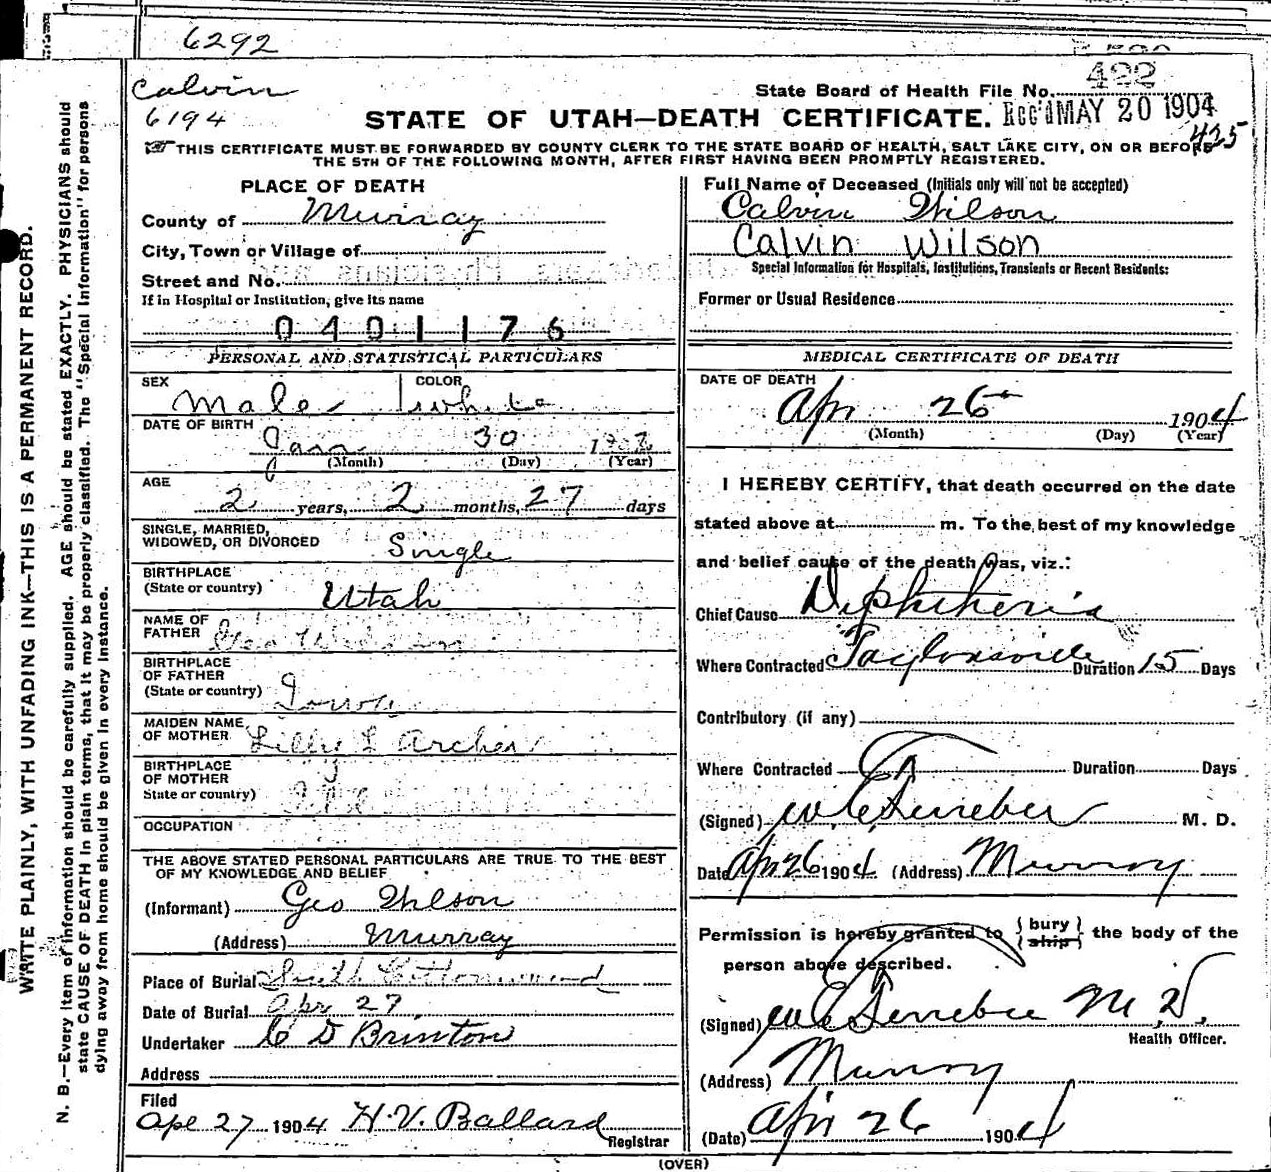 6292
422
Calvin
State Board of Health File No.
6194
STATE OF UTAH—DEATH CERTIFICATE. Rec'd MAY 20 1904
425
THIS CERTIFICATE MUST BE FORWARDED BY COUNTY CLERK TO THE STATE BOARD OF HEALTH, SALT LAKE CITY, ON OR BEFORE
THE 5TH OF THE FOLLOWING MONTH, AFTER FIRST HAVING BEEN PROMPTLY REGISTERED.
PLACE OF DEATH
County of Murray
City, Town or Village of
Street and No.
If in Hospital or Institution, give its name
0401176
Full Name of Deceased (Initials only will not be accepted)
Calvin Wilson
Calvin Wilson
Special Information for Hospitals, Institutions, Transients or Recent Residents:
Former or Usual Residence
PERSONAL AND STATISTICAL PARTICULARS
SEX Male COLOR white
DATE OF BIRTH
Jan 30
(Month) (Day) (Year)
AGE
2 years, 2 months, 27 days
SINGLE, MARRIED,
WIDOWED, OR DIVORCED Single
BIRTHPLACE
(State or country) Utah
NAME OF
FATHER Geo Wilson
BIRTHPLACE
OF FATHER
(State or country) Iowa
MAIDEN NAME
OF MOTHER Lilly L Archer
BIRTHPLACE
OF MOTHER
State or country)
OCCUPATION
THE ABOVE STATED PERSONAL PARTICULARS ARE TRUE TO THE BEST
OF MY KNOWLEDGE AND BELIEF
(Informant) Geo Wilson
(Address) Murray
Place of Burial South Cottonwood
Date of Burial Apr 27
Undertaker C D Brinton
Address
Filed
Apr 27 1904 H. V. Ballard
Registrar
MEDICAL CERTIFICATE OF DEATH
DATE OF DEATH
Apr 26 1904
(Month) (Day) (Year)
I HEREBY CERTIFY, that death occurred on the date
stated above at m. To the best of my knowledge
and belief cause of the death was, viz.:
Chief Cause Diphtheria
Where Contracted Taylorsville Duration 15 Days
Contributory (if any)
Where Contracted Duration Days
(Signed) M. D.
Date Apr 26 1904 (Address) Murray
Permission is hereby granted to {bury} {ship} the body of the
person above described.
(Signed) M. D.
Health Officer.
(Address) Murray
(Date) Apr 26 1904
(OVER)
WRITE PLAINLY, WITH UNFADING INK—THIS IS A PERMANENT RECORD.
N. B.—Every item of information should be carefully supplied. AGE should be stated EXACTLY. PHYSICIANS should
state CAUSE OF DEATH in plain terms, that it may be properly classified. The "Special Information" for persons
dying away from home should be given in every instance.